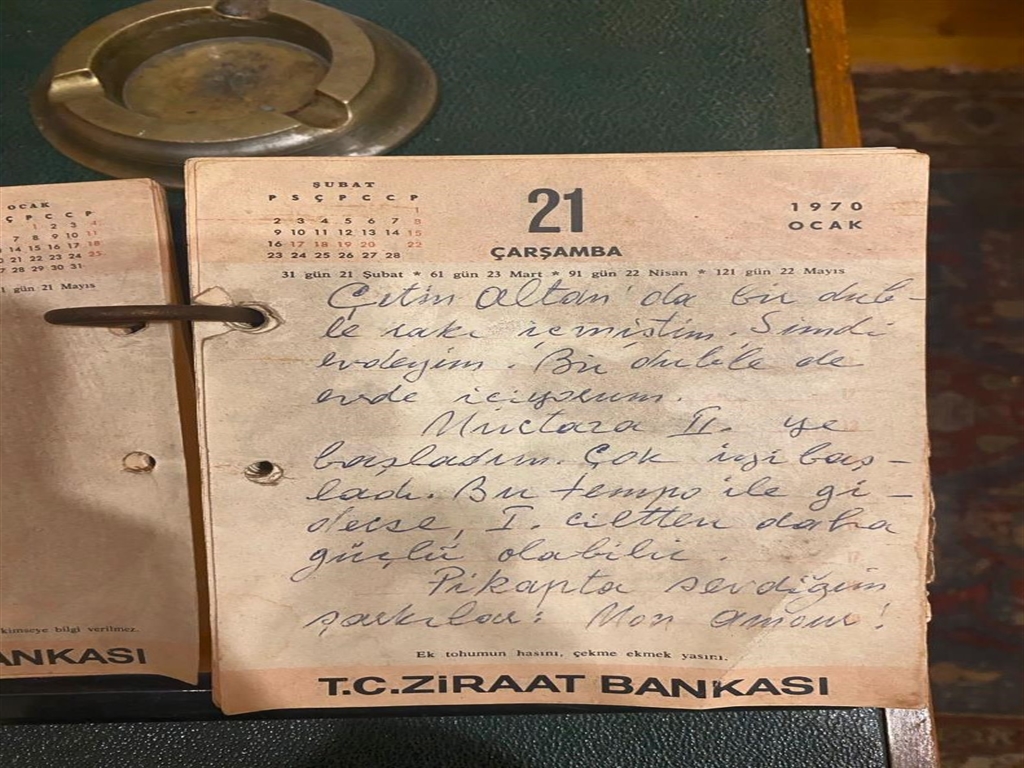 OCAK
Ç P C C P
1 2 3 4
7 8 9 10 11
14 15 16 17 18
22 23 24 25
28 29 30 31
1 gün 21 Mayıs
kimseye bilgi verilmez.
ANKASI
ŞUBAT
P S Ç P C C P
1
2 3 4 5 6 7 8
9 10 11 12 13 14 15
16 17 18 19 20 22
23 24 25 26 27 28
21
ÇARŞAMBA
1970
OCAK
31 gün 21 Şubat * 61 gün 23 Mart * 91 gün 22 Nisan * 121 gün 22 Mayıs
Çetin Altan'da bir dub-
le rakı içmiştim. Şimdi
evdeyim. Bir duble de
evde içiyorum.
II. ye
başladım. Çok iyi baş-
ladı. Bu tempo ile gi-
derse, I. ciltten daha
güçlü olabilir.
Pikapta sevdiğim
şarkılar: Mon amour!
Ek tohumun hasını, çekme ekmek yasını.
T.C.ZİRAAT BANKASI